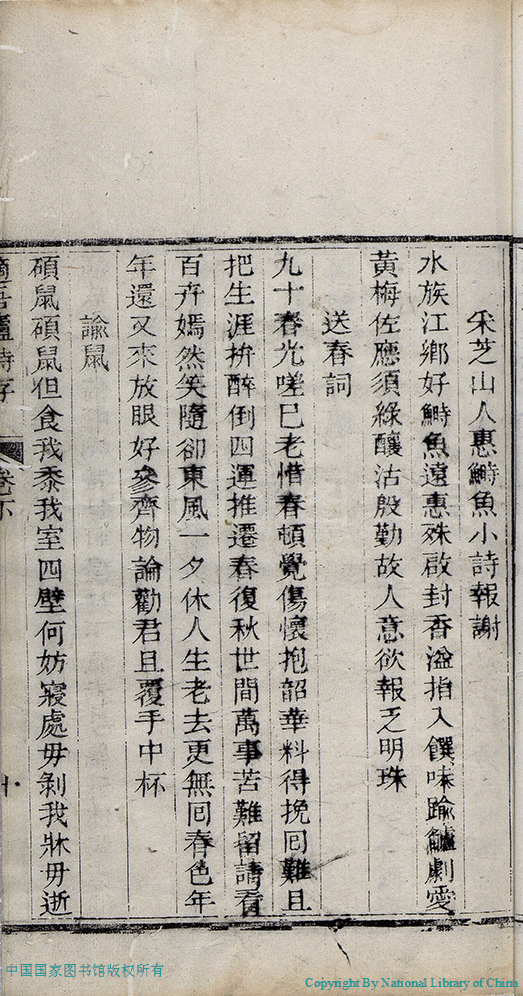 采芝山人惠鰣魚小詩報謝
水族江鄉好鰣魚遠惠殊啟封香溢指入饌味踰鱸劇愛
黃梅佐應須綠釀沽殷勤故人意欲報乏明珠
送春詞
九十春光嗟已老惜春頓覺傷懷抱韶華料得挽囘難且
把生涯拚醉倒四運推遷春復秋世間萬事苦難留請看
百卉嫣然笑隨卻東風一夕休人生老去更無囘春色年
年還又來放眼好參齊物論勸君且覆手中杯
諭鼠
碩鼠碩鼠但食我黍我室四壁何妨寢處毋剝我牀毋逝
卷下
中国国家图书馆版权所有
Copyright By National Library of China